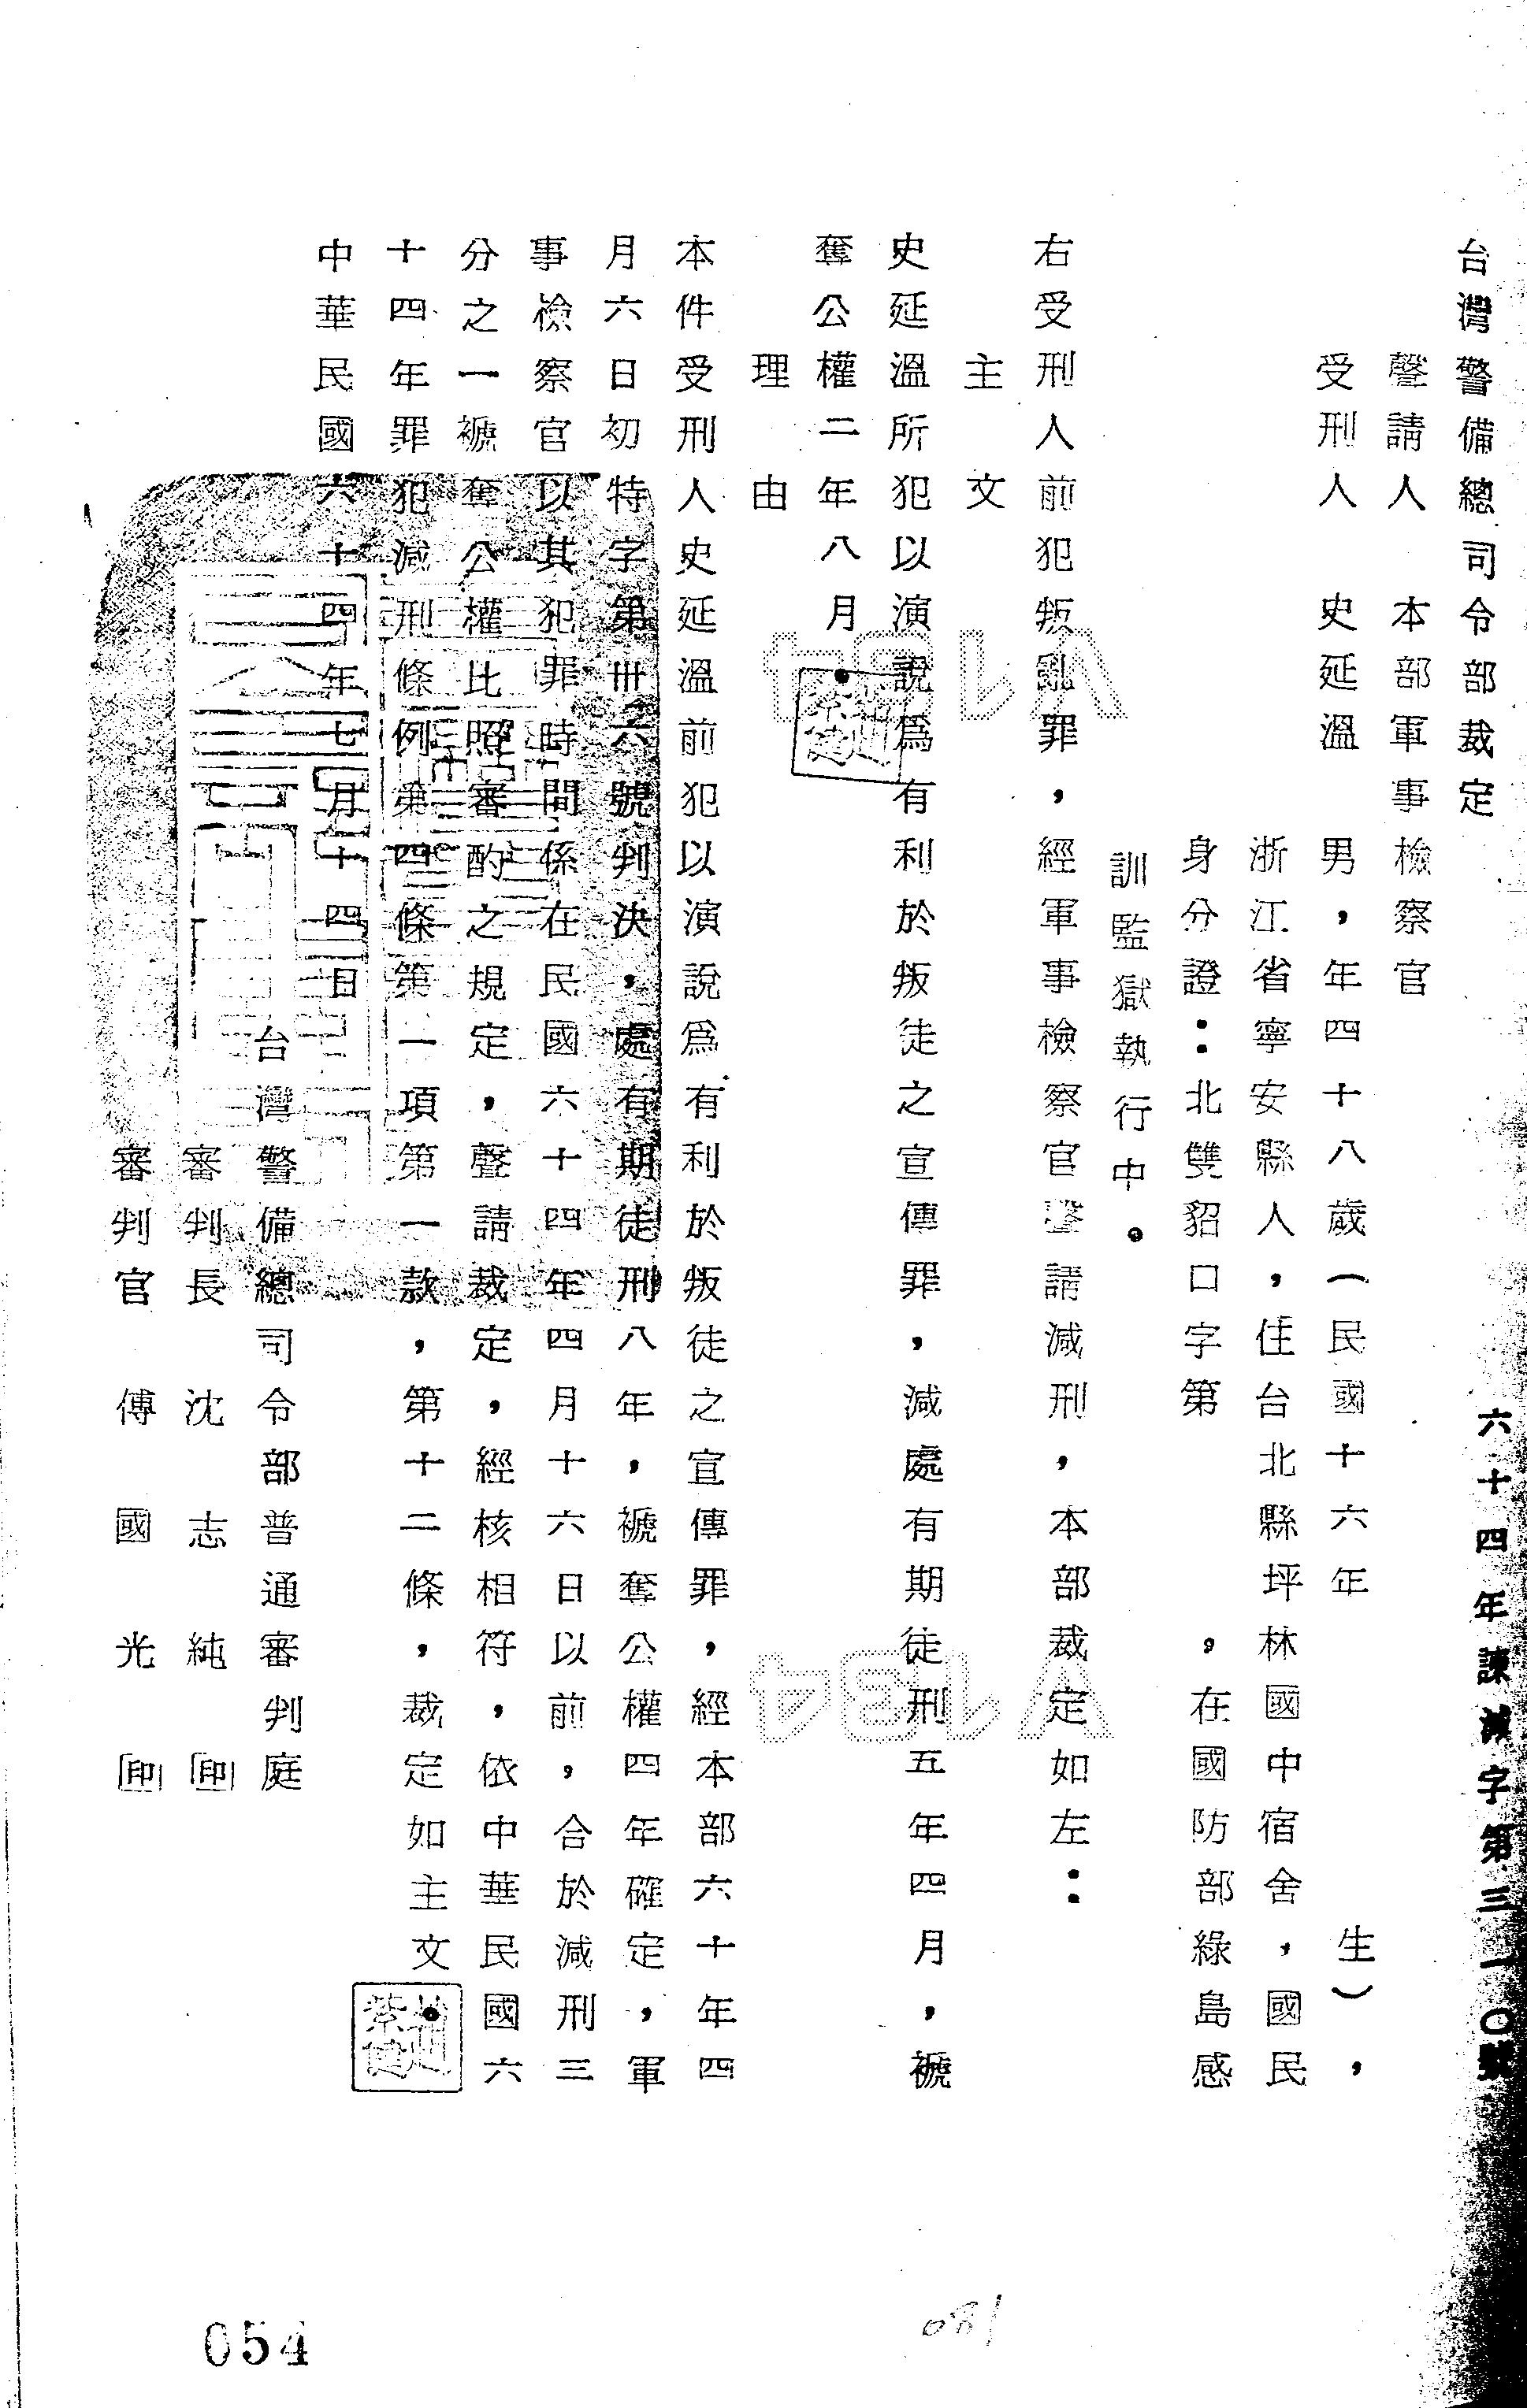 台灣警備總司令部裁定
六十四年諫減字第三一〇號
聲請人　本部軍事檢察官
受刑人　史延溫　男，年四十八歲（民國十六年　生），
浙江省寧安縣人，住台北縣坪林國中宿舍，國民
身分證：北雙貂口字第　，在國防部綠島感
訓監獄執行中。
右受刑人前犯叛亂罪，經軍事檢察官聲請減刑，本部裁定如左：
主文
史延溫所犯以演說為有利於叛徒之宣傳罪，減處有期徒刑五年四月，褫
奪公權二年八月。
理由
本件受刑人史延溫前犯以演說為有利於叛徒之宣傳罪，經本部六十年四
月六日初特字第卅六號判決，處有期徒刑八年，褫奪公權四年確定，軍
事檢察官以其犯罪時間係在民國六十四年四月十六日以前，合於減刑三
分之一褫奪公權比照審酌之規定，聲請裁定，經核相符，依中華民國六
十四年罪犯減刑條例第四條第一項第一款，第十二條，裁定如主文。
中華民國六十四年七月十四日
台灣警備總司令部普通審判庭
審判長　沈志純　印
審判官　傅國光　印
V134
V134
081
054